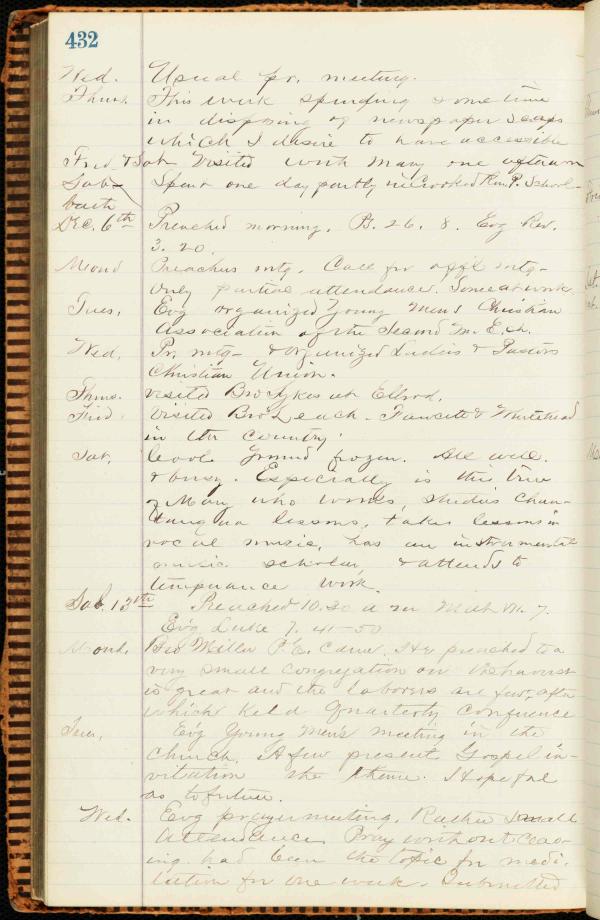 432
Wed. Usual pr. meeting.
Thurs. This week spending some time
in disposing of newspaper scraps
which I desire to have accessible
Frid. & Sat. Visited with Mary one afternoon
Sab- Spent one day partly in Crooked Run P. School-
bath
Dec. 6th Preached morning. Ps. 26. 8. Evg Rev.
3. 20.
Mond Preachers mtg. Call for offil mtg-
Only partial attendance. Some at work
Tues. Evg organized Young Men's Christian
Association of the Second M. E. ch.
Wed. Pr. mtg- & organized Ladies & Pastors
Christian Union.
Thurs. Visited Bro Sykes at Elrod.
Frid. Visited Bro Leach- Fawcett & Whitehead
in the country.
Sat. Cool. Ground frozen. All well.
& busy. Especially is this true
of Mary who works, studies Chau-
tauqua lessons, takes lessons in
vocal music, has an instrumental
music scholar, & attends to
temperance work.
Sab. 13th Preached 10.30 a m Matt VI. 7.
Evg Luke 7. 41-50
Mond. Bro Miller P. E. came. He preached to a
very small congregation on the harvest
is great and the laborers are few, after
which held Quarterly Conference
Tues. Evg Young Men's meeting in the
Church. A few present. Gospel in-
vitation the theme. Hopeful
as to future.
Wed. Evg prayer meeting. Rather small
attendance. Pray without ceas-
ing had been the topic for medi-
tation for one week. Submitted